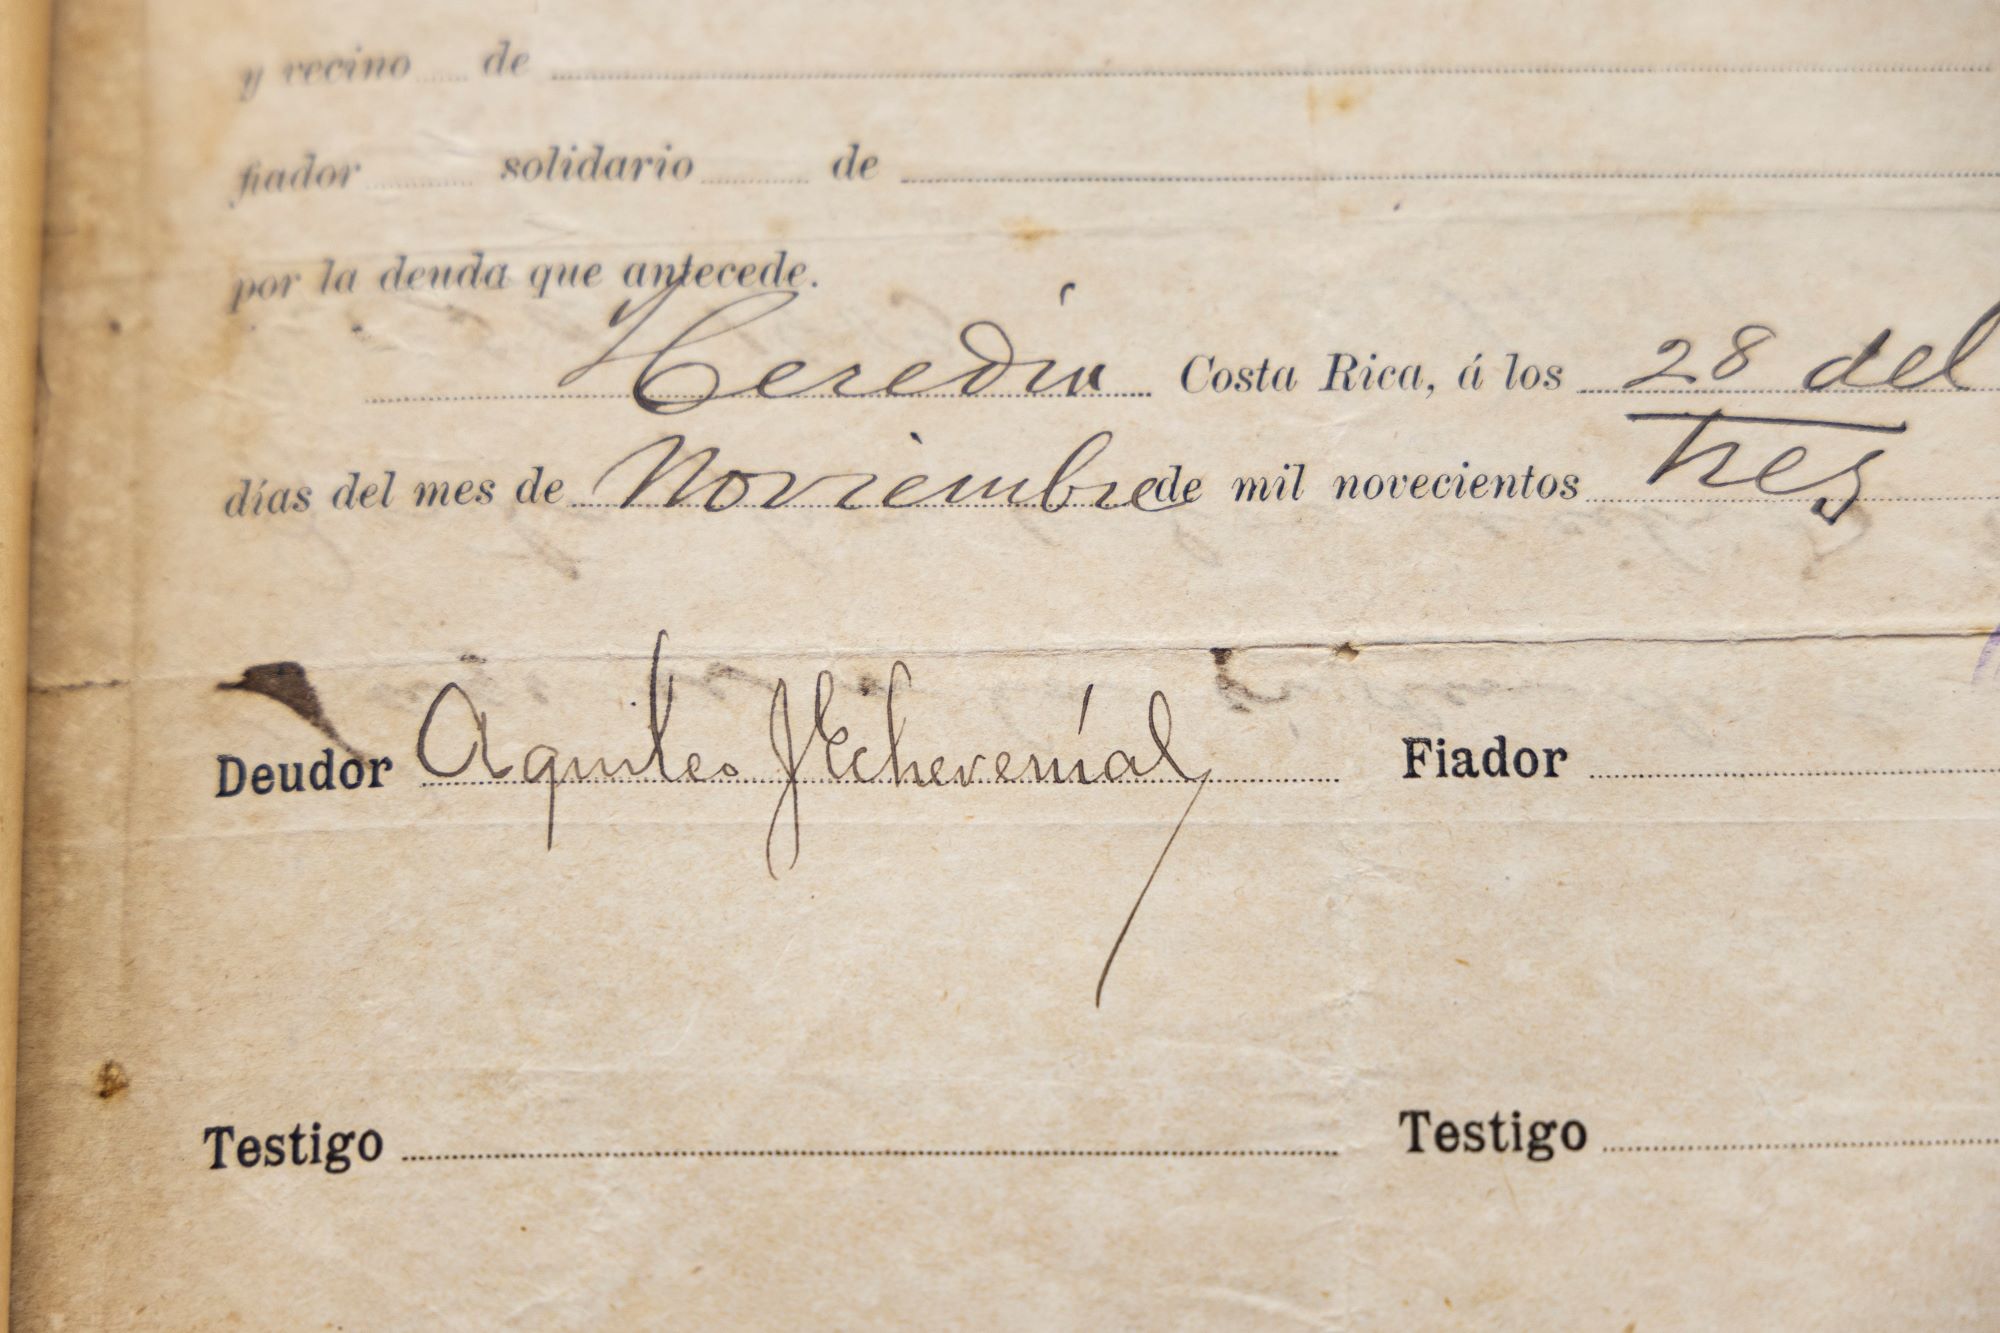 y vecino de
fiador solidario de
por la deuda que antecede.
Heredia Costa Rica, á los 28 del
días del mes de Noviembre de mil novecientos tres
Deudor Aquileo J Echeverría Fiador
Testigo Testigo